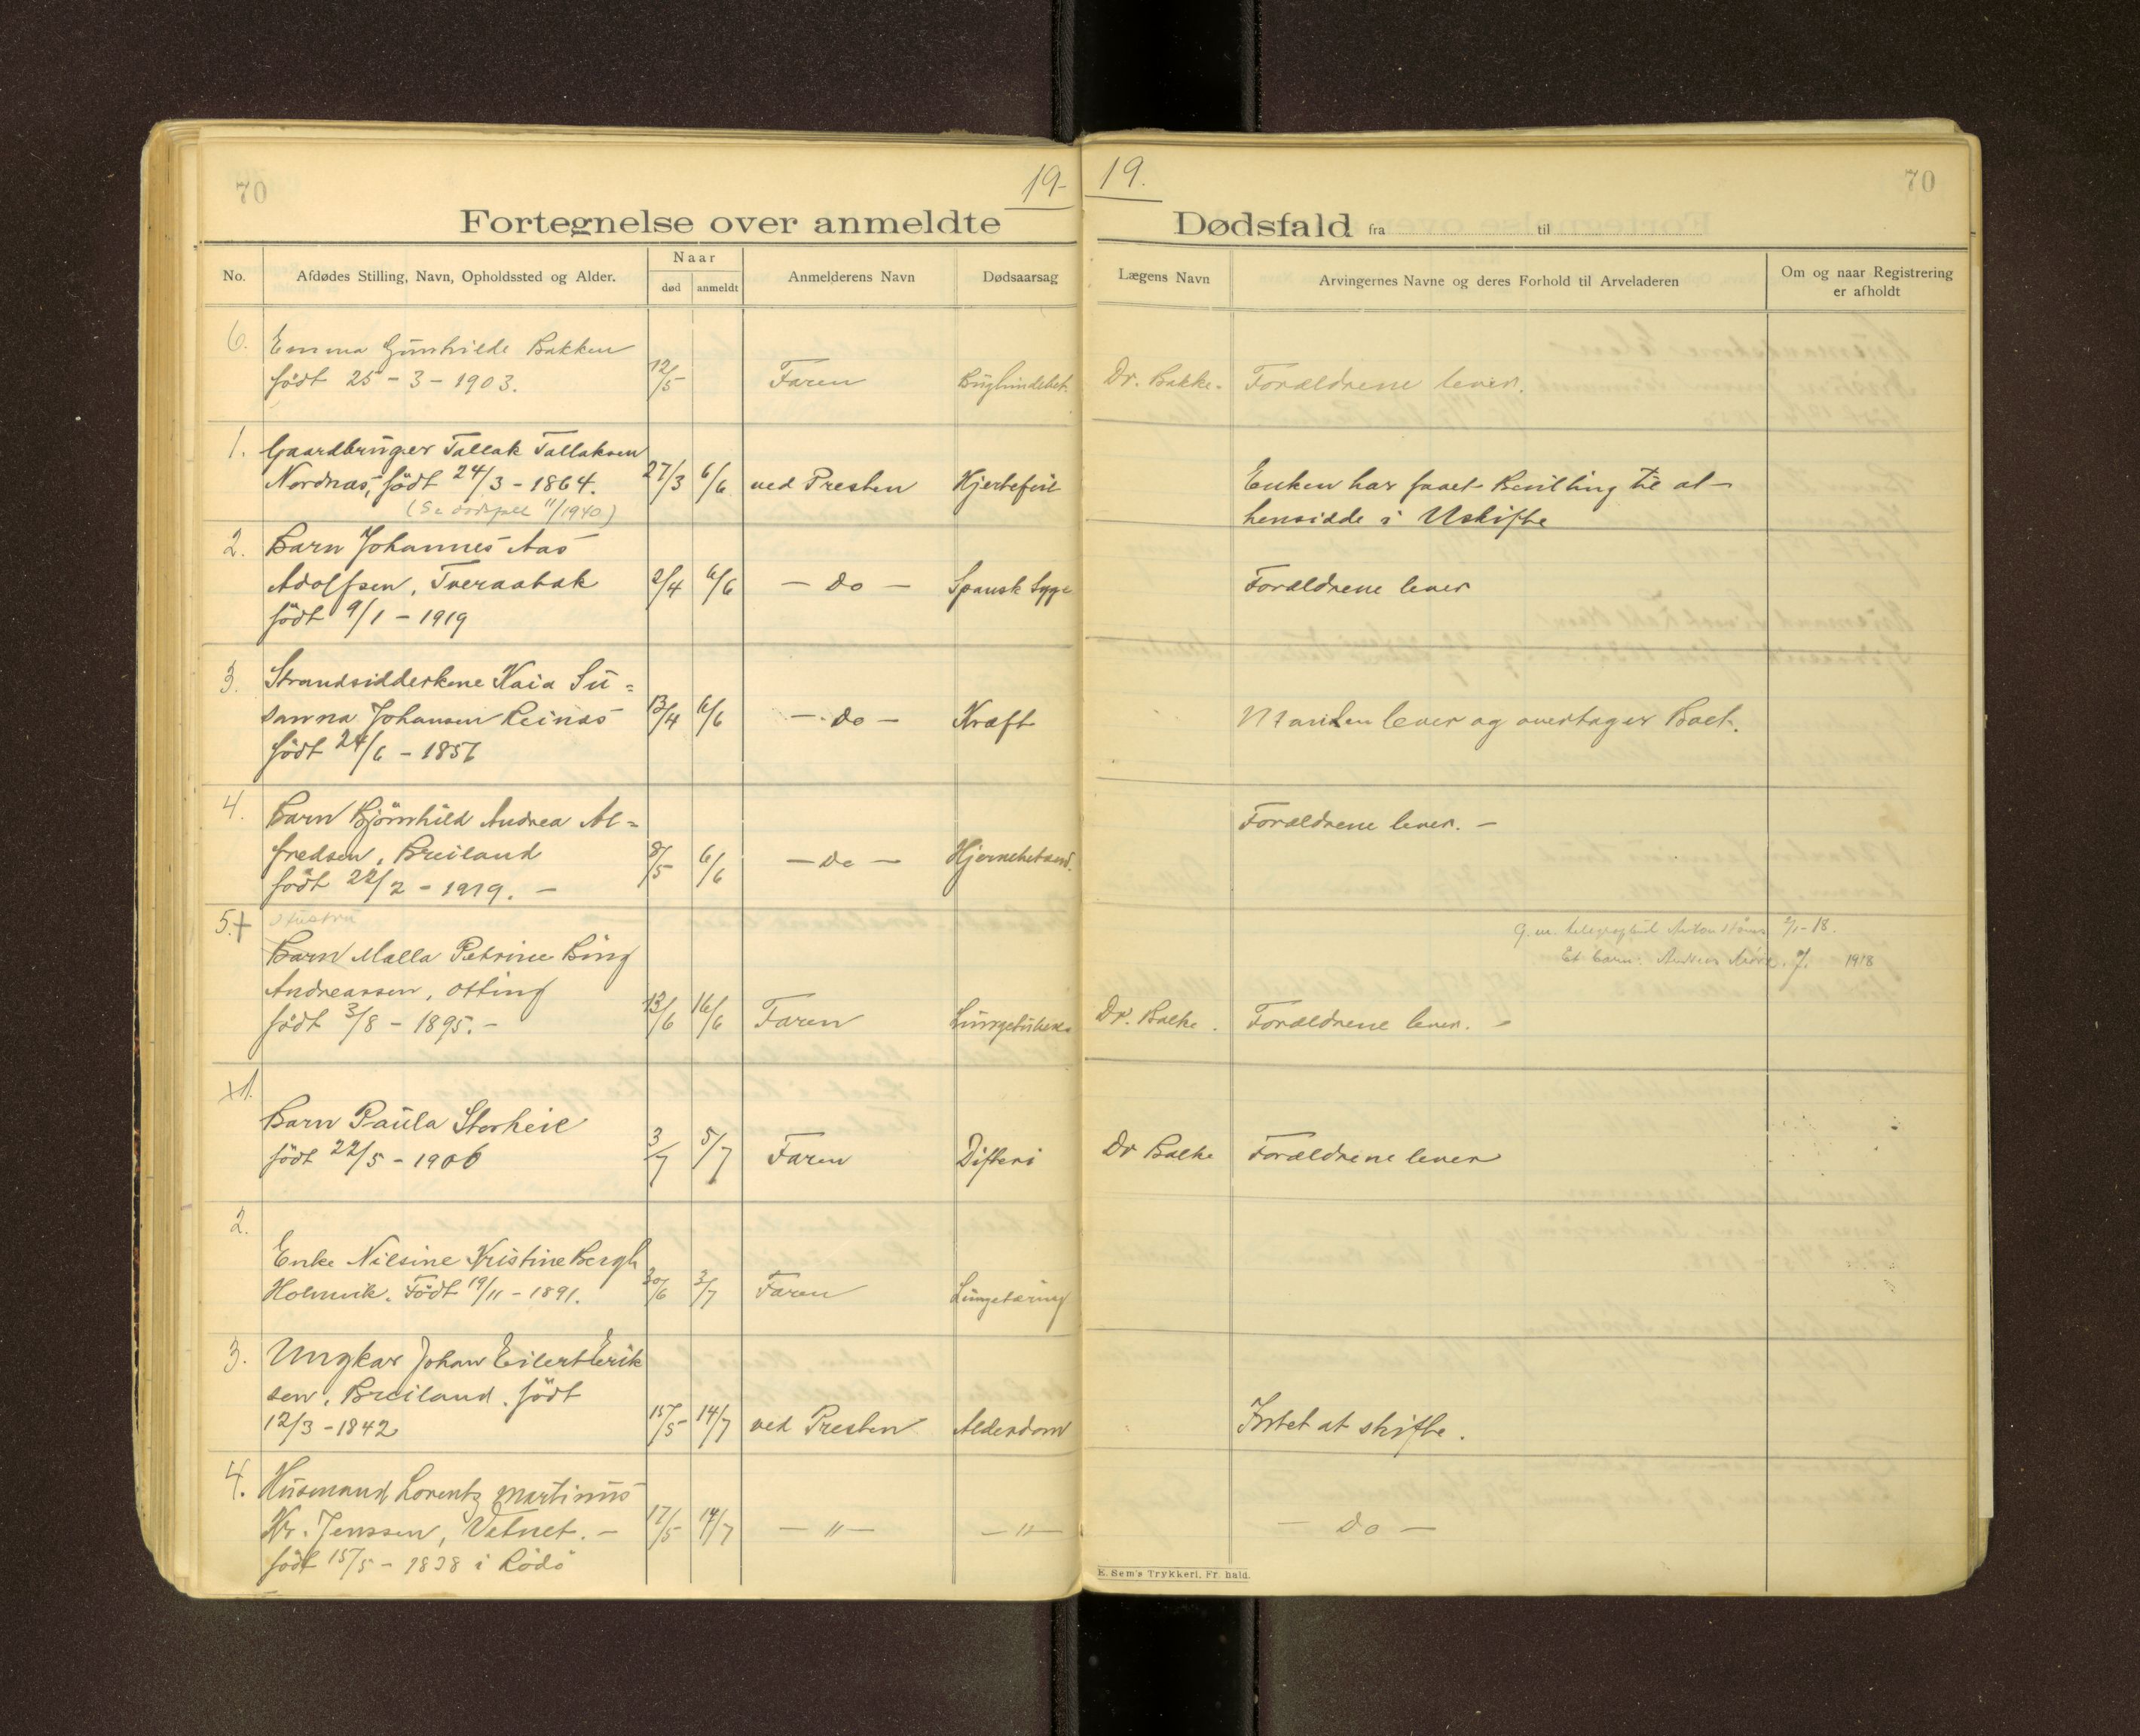 70
19-
Fortegnelse over anmeldte
No.
Afdødes Stilling, Navn, Opholdssted og Alder.
Naar
død
anmeldt
Anmelderens Navn
Dødsaarsag
19.
70
Dødsfald fra til
Lægens Navn
Arvingernes Navne og deres Forhold til Arveladeren
Om og naar Registrering
er afholdt
6. Emma Gunhilde Bakken
født 25 - 3 - 1903. 12/5 Faren Bughindebet. Dr. Bakke. Forældrene lever.
1. Gaardbruger Tallak Tallaksen
Nordnas, født 24/3 - 1864. 27/3 6/6 ved Presten Hjertefeil Enken har faaet Bevilling til at
(Se dødsfall 11/1940) hensidde i Uskifte
2. Barn Johannes Aas
Adolfsen, Tveraabak 2/4 6/6 - Do - Spansk Syge Forældrene lever
født 9/1 - 1919
3. Strandsidderkone Kaia Su=
sanna Johansen Leinas 13/4 6/6 - Do - Kræft Manden lever og overtager Boet.
født 24/6 - 1856
4. Barn Bjørnhild Andrea Al= Forældrene lever. -
fredsen, Breiland 8/5 6/6 - Do - Hjernebetænd.
født 22/2 - 1919. -
5. + Hustru g. m. 1/1-18.
Barn Malla Petrine Bing Et barn: 1918
Andreassen, Otting
født 3/8 - 1895. - 13/6 16/6 Faren Dr. Balke. Forældrene lever. -
x1.
Barn Paula Storheil
født 22/5 - 1906 3/7 5/7 Faren Difteri Dr Balke Forældrene lever
2.
Enke Nilsine Kristine Bergh
Holmvik. Født 19/11 - 1891. 30/6 3/7 Faren Lungetæring
3. Ungkar Johan Eilert Erik
sen, Breiland. født
12/3 - 1842 15/5 14/7 ved Presten Alderdom Intet at skifte.
4. Husmand Lorentz Martinus
Kr. Jenssen, Vatnet. - 17/5 14/7 - " - - " - - Do -
født 15/5 - 1838 i Rødø
E. Sem's Trykkeri, Fr. hald.